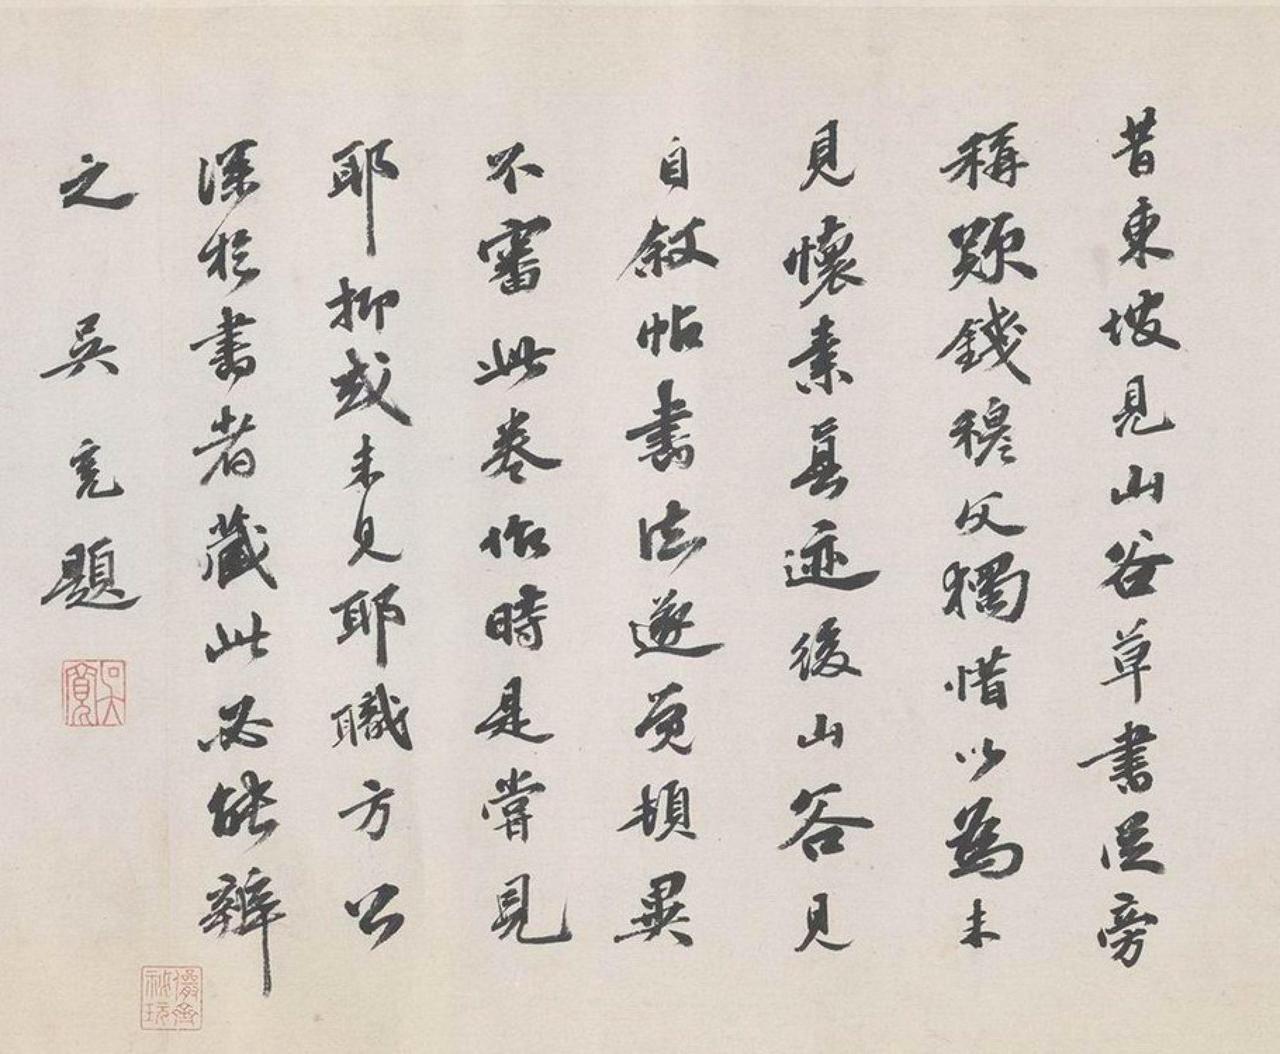 昔東坡見山谷草書從旁
稱歎錢穆父獨惜以為未
見懷素真迹後山谷見
自敘帖書法遂覺頓異
不審此卷作時是嘗見
耶抑或未見耶職方公
深於書者藏此必能辨
之 吳寬題
吳寬
儼齋秘玩